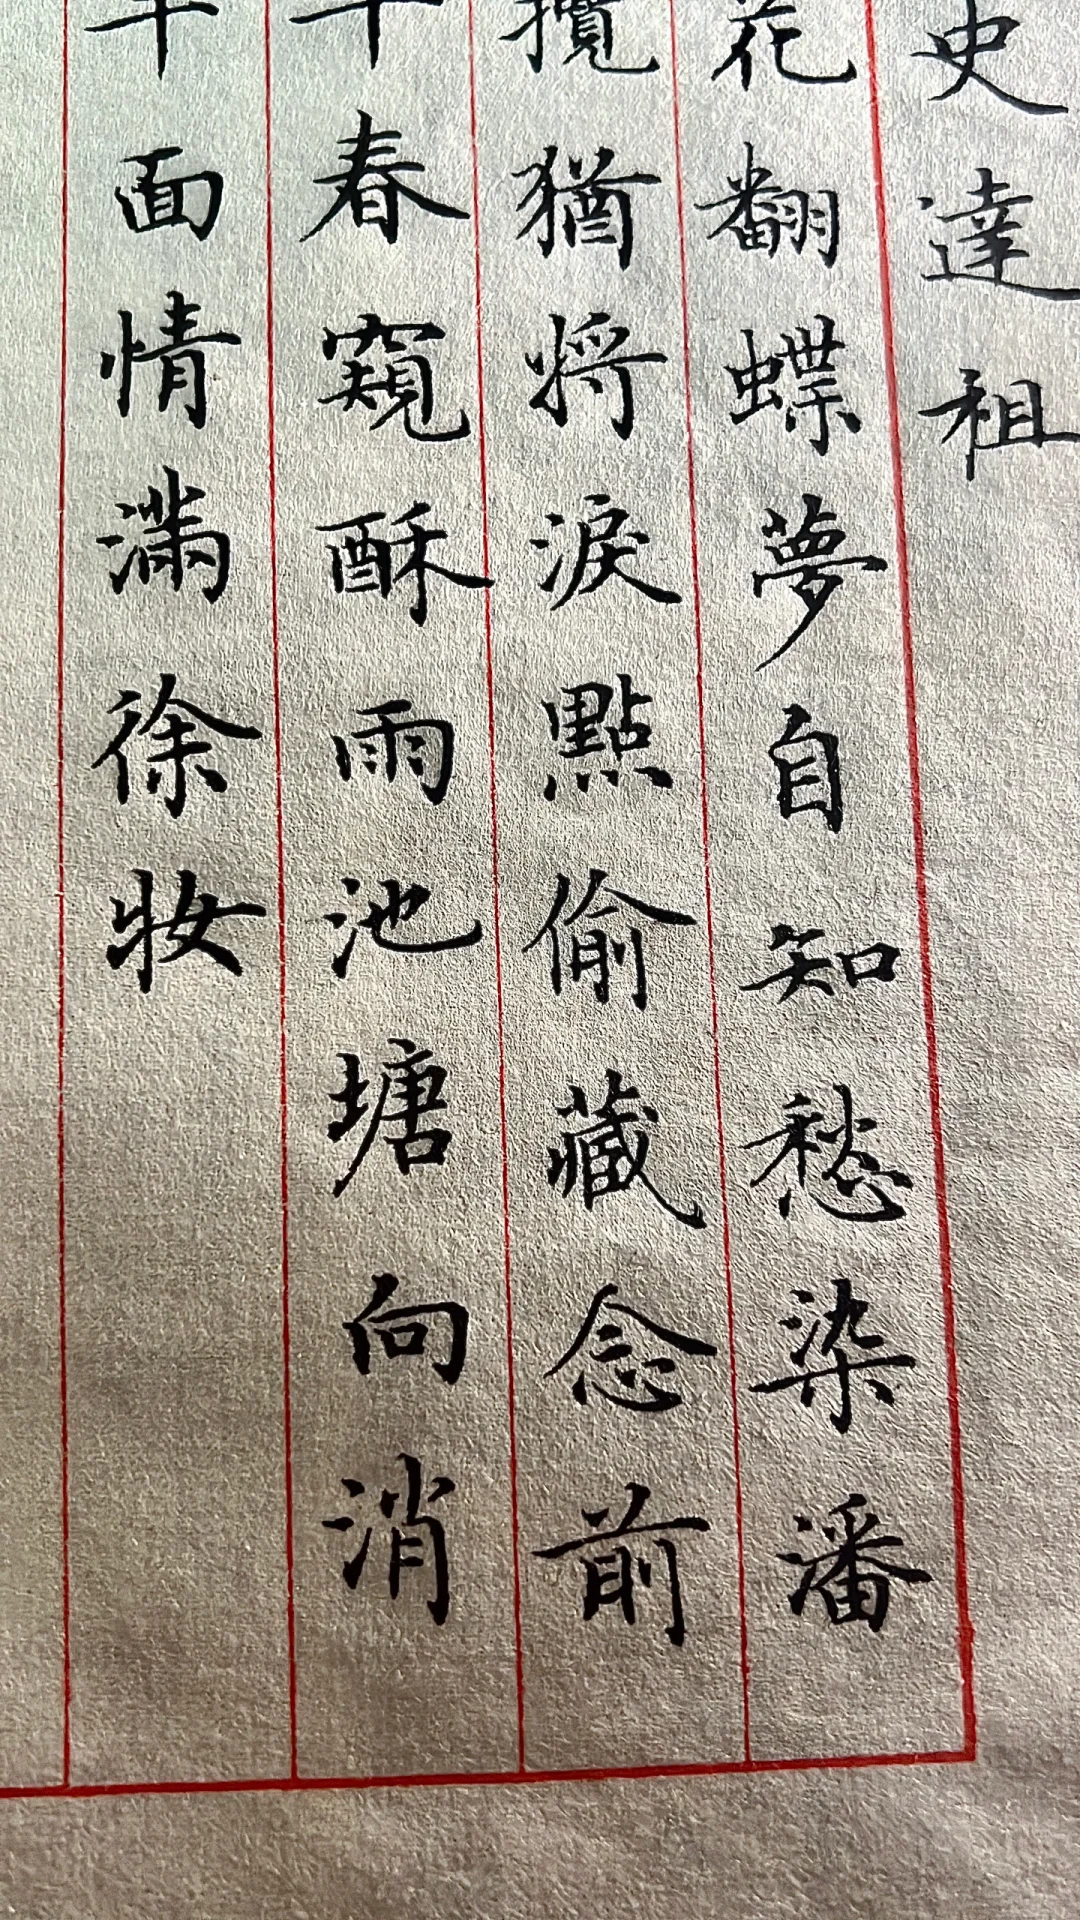 史達祖
花翻蝶夢自知愁染潘
攬猶將淚點偷藏念前
春窺酥雨池塘向消
面情滿徐妝